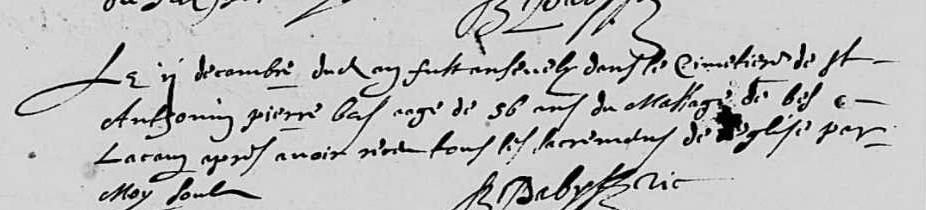 Le ij decembre dud an fust ensevely dans le Cimetiere de st
Anthonin pierre bas aage de 56 ans du Massage de bes e
Lacam apres avoir receu tous les sacremens de l'eglise par
Moy soubs